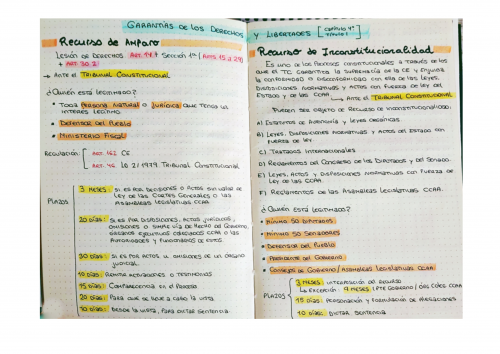 GARANTÍAS DE LOS DERECHOS
Recurso de Amparo
LESIÓN DE DERECHOS ART. 14 + SECCIÓN 1ª (ARTS. 15 a 29)
+ ART. 30.2
→ ANTE EL TRIBUNAL CONSTITUCIONAL
¿QUIÉN ESTÁ LEGITIMADO?
• TODA PERSONA NATURAL O JURÍDICA QUE TENGA UN
INTERÉS LEGÍTIMO
• DEFENSOR DEL PUEBLO
• MINISTERIO FISCAL
REGULACIÓN
ART. 162 CE
LO 2/1979 TRIBUNAL CONSTITUCIONAL
PLAZOS
3 MESES: SI ES POR DECISIONES O ACTOS SIN VALOR DE
LEY DE LAS CORTES GENERALES O LAS
ASAMBLEAS LEGISLATIVAS CCAA
20 DÍAS: SI ES POR DISPOSICIONES, ACTOS JURÍDICOS,
OMISIONES O SIMPLE VÍA DE HECHO DEL GOBIERNO,
ÓRGANOS EJECUTIVOS COLEGIADOS CCAA O LAS
AUTORIDADES Y FUNCIONARIOS DE ESTOS.
30 DÍAS: SI ES POR ACTOS U OMISIONES DE UN ÓRGANO
JUDICIAL
10 DÍAS: REMITIR ACTUACIONES O TESTIMONIOS
COMPARECENCIA EN EL PROCESO
PARA QUE SE LLEVE A CABO LA VISTA
10 DÍAS: DESDE LA VISTA, PARA DICTAR SENTENCIA
Y LIBERTADES [CAPÍTULO 4º
TÍTULO I]
Recurso de Inconstitucionalidad
ES UNO DE LOS PROCESOS CONSTITUCIONALES A TRAVÉS DE LOS
QUE EL TC GARANTIZA LA SUPREMACÍA DE LA CE Y ENJUICIA
LA CONFORMIDAD O DISCONFORMIDAD CON ELLA DE LAS LEYES,
DISPOSICIONES NORMATIVAS Y ACTOS CON FUERZA DE LEY DEL
ESTADO Y DE LAS CCAA.
→ ANTE EL TRIBUNAL CONSTITUCIONAL
PUEDEN SER OBJETO DE RECURSO DE INCONSTITUCIONALIDAD:
A) ESTATUTOS DE AUTONOMÍA Y LEYES ORGÁNICAS.
B) LEYES, DISPOSICIONES NORMATIVAS Y ACTOS DEL ESTADO CON
FUERZA DE LEY.
C) TRATADOS INTERNACIONALES
D) REGLAMENTOS DEL CONGRESO DE LOS DIPUTADOS Y DEL SENADO.
E) LEYES, ACTOS Y DISPOSICIONES NORMATIVAS CON FUERZA DE
LEY DE LAS CCAA.
F) REGLAMENTOS DE LAS ASAMBLEAS LEGISLATIVAS CCAA.
¿QUIÉN ESTÁ LEGITIMADO?
• MÍNIMO 50 DIPUTADOS
• MÍNIMO 50 SENADORES
• DEFENSOR DEL PUEBLO
• PRESIDENTE DEL GOBIERNO
• CONSEJOS DE GOBIERNO / ASAMBLEAS LEGISLATIVAS CCAA
PLAZOS
3 MESES: INTERPOSICIÓN DEL RECURSO
→ EXCEPCIÓN: 9 MESES (PTE GOBIERNO / ÓRG COLEG CCAA
15 DÍAS: PERSONACIÓN Y FORMULACIÓN DE ALEGACIONES
10 DÍAS: DICTAR SENTENCIA